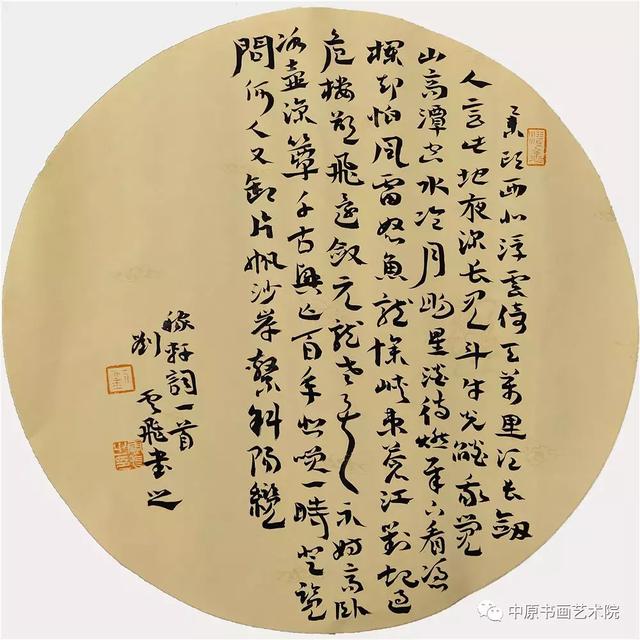 舉頭西北浮雲倚天萬里须长劍
人言此地夜深长見斗牛光燄我覺
山高潭空水冷月明星淡待燃犀下看憑
欄却怕風雷怒魚龍惨峡束蒼江對起過
危楼欲飛還斂元龍老矣不妨高卧
冰壶凉簟千古興亡百年悲笑一時登覽
問何人又卸片帆沙岸繫斜陽纜
稼軒詞一首
劉雲飛書之
中原书画艺术院